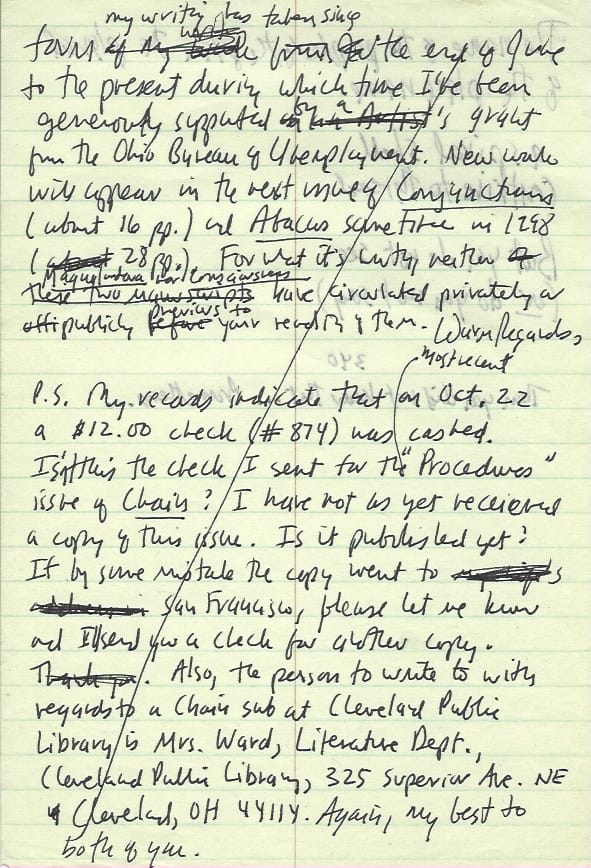 my writing has taken since
form of my work from the end of June
to the present during which time I've been
generously supported by a Artist's grant
from the Ohio Bureau of Unemployment. New work
will appear in the next issue of Conjunctions
(about 16 pp.) and Abacus sometime in 1998
(about 28 pp.). For what it's worth, neither of
Consciousness
these two manuscripts have circulated privately or
publicly before previous to your reading of them. Warm Regards,
most recent
P.S. My records indicate that on Oct. 22
a $12.00 check (#874) was cashed.
Isn't this the check I sent for the "Procedures"
issue of Chain? I have not as yet received
a copy of this issue. Is it published yet?
If by some mistake the copy went to
San Francisco, please let me know
and I'll send you a check for another copy.
Thank you. Also, the person to write to with
regards to a Chain sub at Cleveland Public
Library is Mrs. Ward, Literature Dept.,
Cleveland Public Library, 325 Superior Ave. NE
Cleveland, OH 44114. Again, my best to
both of you.